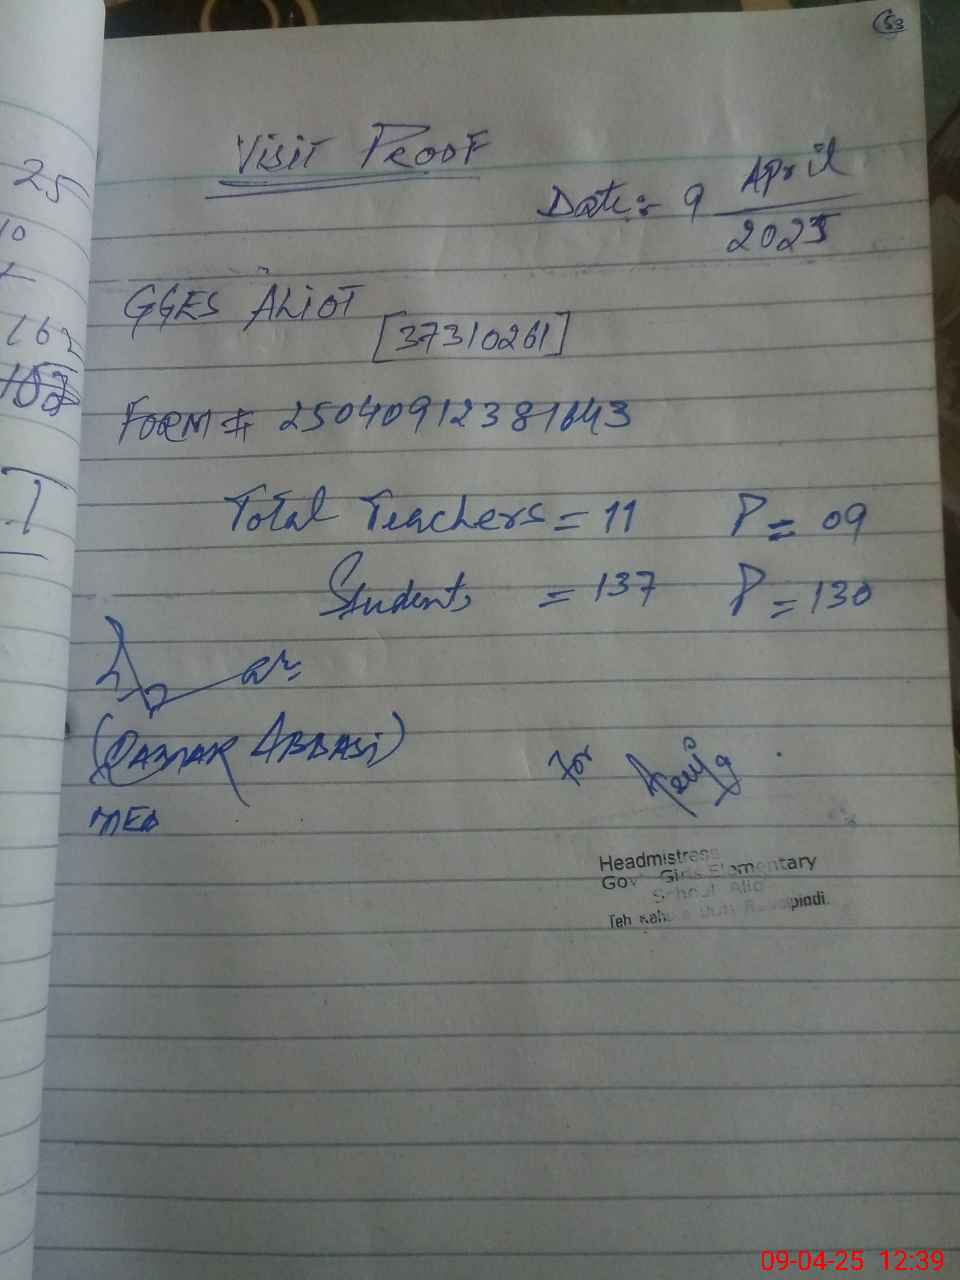 53
Visit Proof
Date:- 9 April 2025
GGES ALIOT
[37310261]
Form # 25040912381643
Total Teachers = 11 P = 09
Students = 137 P = 130
(QAMAR ABBASI)
MEA
for
Headmistress
Gov Girls Elementary
School Alio
Teh Kah
25
10
162
09-04-25 12:39